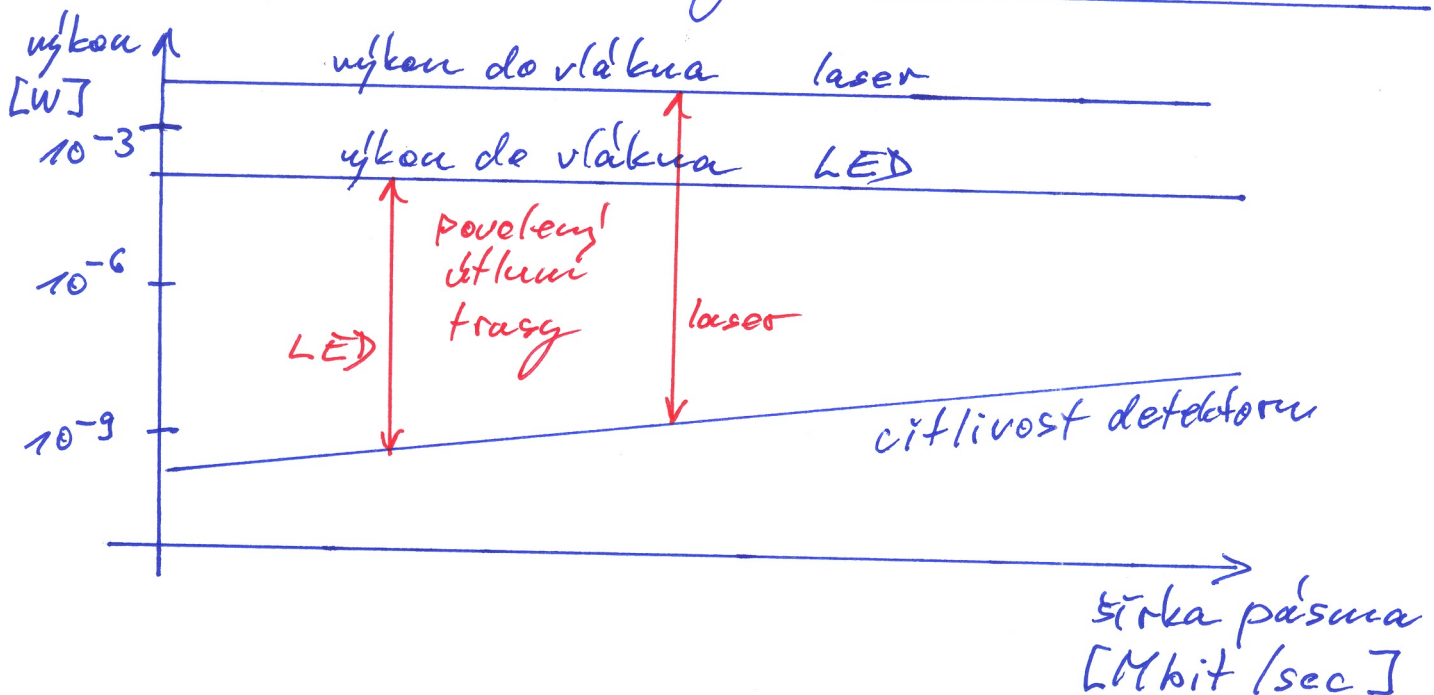 výkon
[W]
výkon do vlákna laser
10⁻³
výkon do vlákna LED
povolený
útlum
trasy
10⁻⁶
LED
laser
10⁻⁹
citlivost detektoru
šířka pásma
[Mbit/sec]